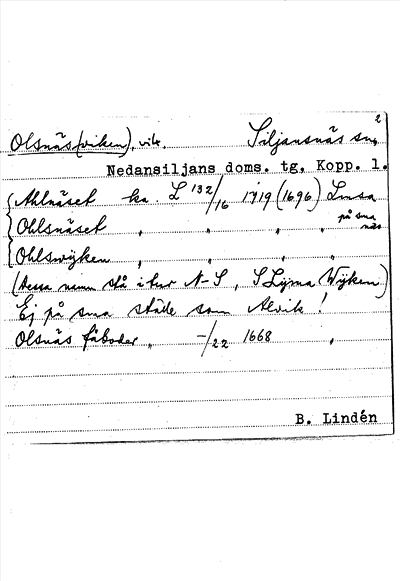 2
Olsnäs(viken), vik. Siljansnäs sn,
Nedansiljans doms. tg. Kopp. l.
Ahlnäset ka. L 132/16 1719 (1696) Limsa
Ohlsnäset " " " " på sma näs
Ohlswijken " " " "
(dessa namn stå i tur N-S, S Lijma Wijken)
Ej på sma ställe som Alvik!
Olsnäs fäboder " -/22 1668 "
B. Lindén